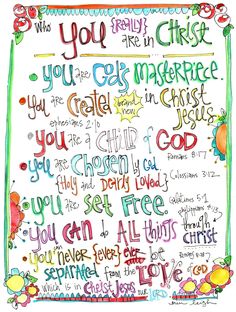 Who YOU {REALLY} are in CHRIST
• YOU are GOD'S MASTERPIECE.
• YOU are CREATED {brand new} in CHRIST JESUS
ephesians 2:10
• YOU are a CHILD of GOD
Romans 8:17
• YOU are CHOSEN by God
{Holy and Dearly Loved} Colossians 3:12
• YOU are SET FREE. Galatians 5:1
philippians 4:13
• YOU CAN do ALL things through CHRIST
• YOU can NEVER {EVER} EVER be
SEPARATED from the LOVE of GOD
which is in CHRIST JESUS our LORD.